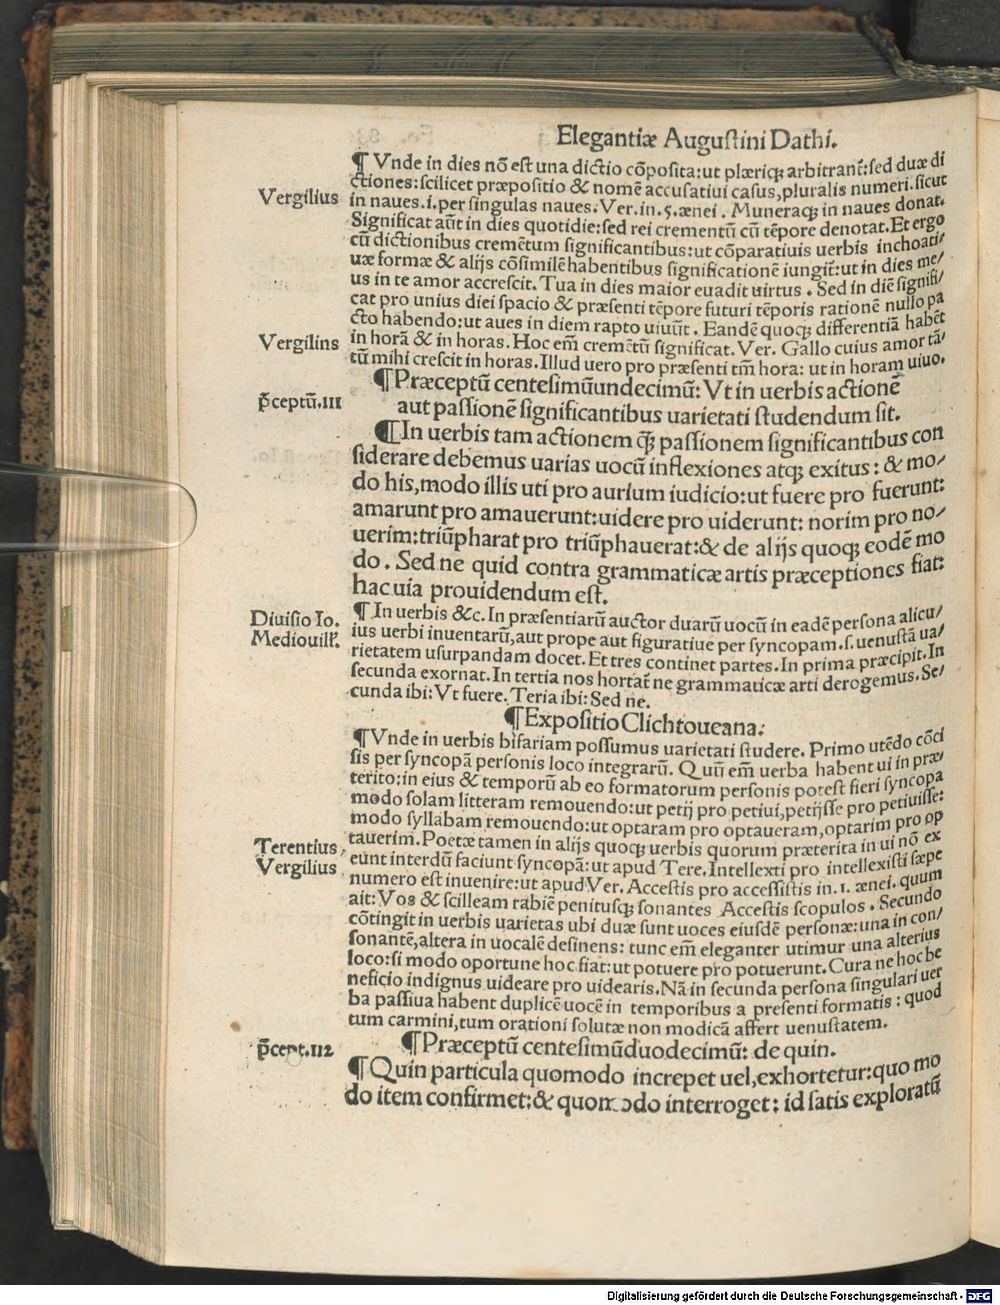 Elegantiæ Augustini Dathi.
¶ Vnde in dies nō est una dictio cōposita: ut plæriq; arbitrant̄: sed duæ di
ctiones: scilicet præpositio & nomē accusatiui casus, pluralis numeri. sicut
Vergilius
in naues. i. per singulas naues. Ver. in. 5. ænei. Muneraq; in naues donat.
Significat aūt in dies quotidie: sed rei crementū cū tēpore denotat. Et ergo
cū dictionibus cremētum significantibus: ut cōparatiuis uerbis inchoati/
uæ formæ & alijs cōsimilē habentibus significationē iungit̄: ut in dies me/
us in te amor accrescit. Tua in dies maior euadit uirtus. Sed in diē signifi/
cat pro unius diei spacio & præsenti tēpore futuri tēporis rationē nullo pa
cto habendo: ut aues in diem rapto uiuūt. Eandē quoq; differentiā habēt
Vergilins
in horā & in horas. Hoc em̄ cremētū significat. Ver. Gallo cuius amor tā/
tū mihi crescit in horas. Illud uero pro præsenti tm̄ hora: ut in horam uiuo.
p̄ceptū. 111
¶ Præceptū centesimūundecimū: Vt in uerbis actionē
aut passionē significantibus uarietati studendum sit.
¶ In uerbis tam actionem q̄; passionem significantibus con
siderare debemus uarias uocū inflexiones atq; exitus: & mo/
do his, modo illis uti pro aurium iudicio: ut fuere pro fuerunt:
amarunt pro amauerunt: uidere pro uiderunt: norim pro no/
uerim: triūpharat pro triūphauerat: & de alijs quoq; eodē mo
do. Sed ne quid contra grammaticæ artis præceptiones fiat:
hac uia prouidendum est.
Diuisio Io.
Mediouilł.
¶ In uerbis &c. In præsentiarū auctor duarū uocū in eadē persona alicu/
ius uerbi inuentarū, aut prope aut figuratiue per syncopam. s. uenustā ua/
rietatem usurpandam docet. Et tres continet partes. In prima præcipit. In
secunda exornat. In tertia nos hortat̄ ne grammaticæ arti derogemus. Se/
cunda ibi: Vt fuere. Teria ibi: Sed ne.
¶ Expositio Clichtoueana:
¶ Vnde in uerbis bifariam possumus uarietati studere. Primo utēdo cōci
sis per syncopā personis loco integrarū. Quū em̄ uerba habent ui in præ/
terito: in eius & temporū ab eo formatorum personis potest fieri syncopa
modo solam litteram remouendo: ut petij pro petiui, petijsse pro petiuisse:
modo syllabam remouendo: ut optaram pro optaueram, optarim pro op
tauerim. Poetæ tamen in alijs quoq; uerbis quorum præterita in ui nō ex
Terentius
Vergilius
eunt interdū faciunt syncopā: ut apud Tere. Intellexti pro intellexisti sæpe
numero est inuenire: ut apud Ver. Accestis pro accessistis in. 1. ænei. quum
ait: Vos & scilleam rabiē penitusq; sonantes Accestis scopulos. Secundo
cōtingit in uerbis uarietas ubi duæ sunt uoces eiusdē personæ: una in con/
sonantē, altera in uocalē desinens: tunc em̄ eleganter utimur una alterius
loco: si modo oportune hoc fiat: ut potuere pro potuerunt. Cura ne hoc be
neficio indignus uideare pro uidearis. Nā in secunda persona singulari uer
ba passiua habent duplicē uocē in temporibus a presenti formatis: quod
tum carmini, tum orationi solutæ non modicā affert uenustatem.
p̄cept. 112
¶ Præceptū centesimūduodecimū: de quin.
¶ Quin particula quomodo increpet uel, exhortetur: quo mo
do item confirmet: & quomodo interroget: id satis exploratū
Digitalisierung gefördert durch die Deutsche Forschungsgemeinschaft - DFG